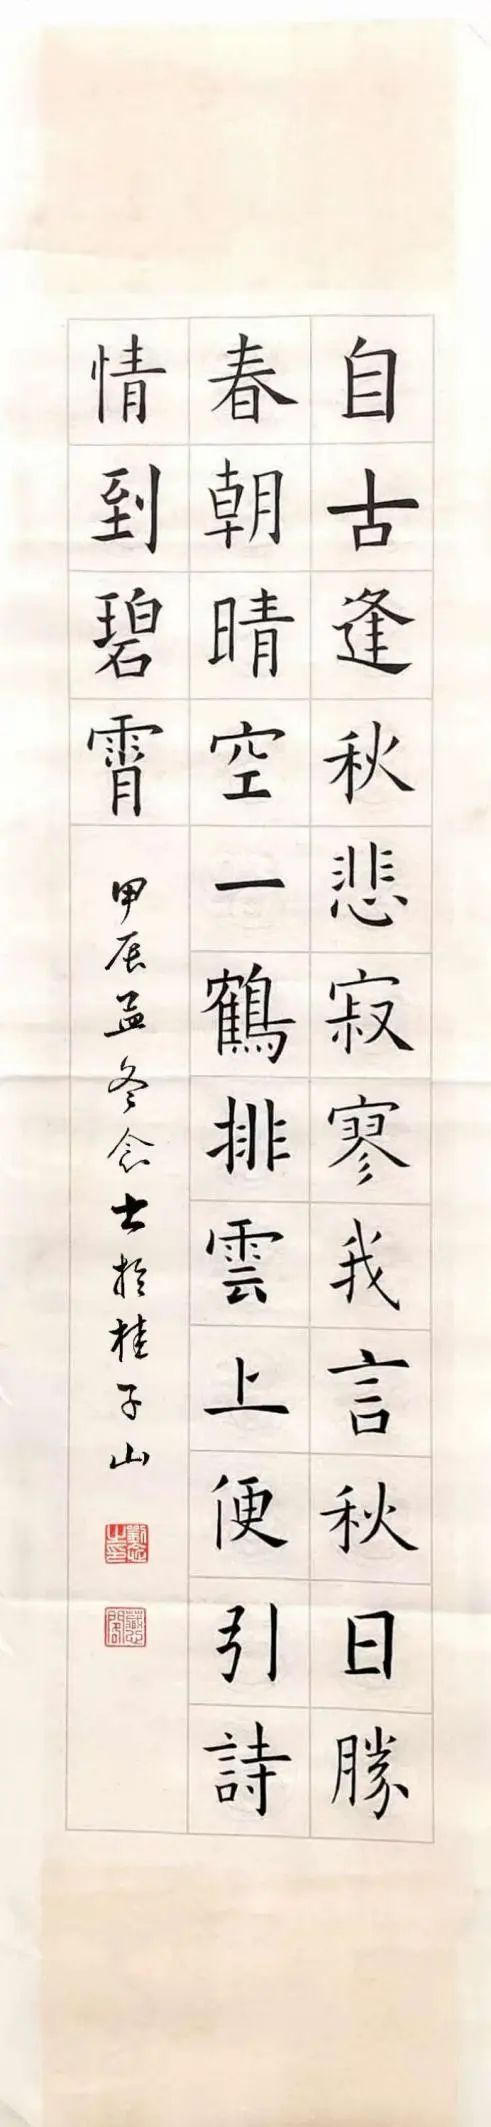 自古逢秋悲寂寥我言秋日勝
春朝晴空一鶴排雲上便引詩
情到碧霄
甲辰孟冬念士於桂子山